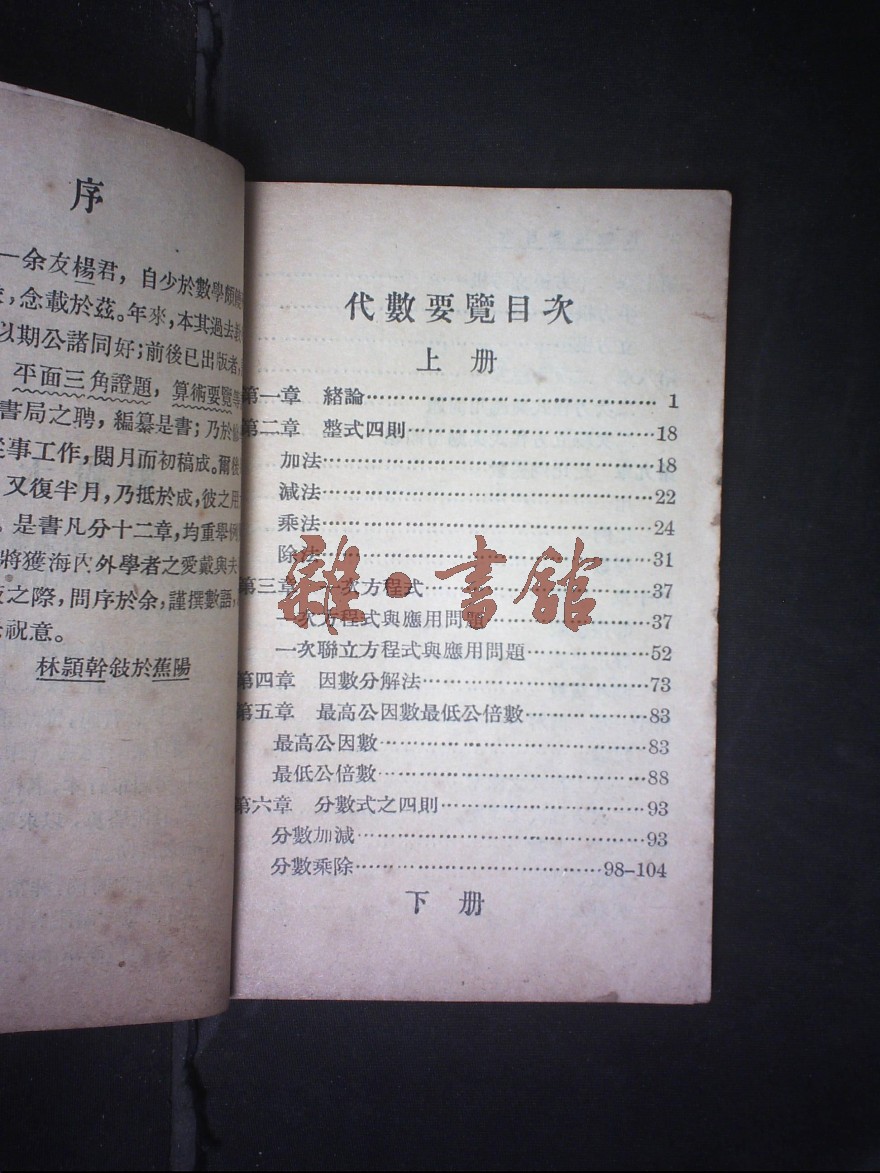 序
一余友楊君，自少於數學頗
念載於茲。年來，本其過去教
以期公諸同好；前後已出版者，
平面三角證題，算術要覽等
書局之聘，編纂是書；乃於
事工作，閱月而初稿成。爾後
又復半月，乃抵於成，彼之用
。是書凡分十二章，均重舉例
將獲海內外學者之愛戴與夫
之際，問序於余，謹撰數語，
祝意。
林顥幹敍於蕉陽
代數要覽目次
上册
第一章 緒論……………………………………1
第二章 整式四則………………………………18
加法……………………………………………18
減法……………………………………………22
乘法……………………………………………24
除法……………………………………………31
第三章 一次方程式……………………………37
一次方程式與應用問題………………………37
一次聯立方程式與應用問題…………………52
第四章 因數分解法……………………………73
第五章 最高公因數最低公倍數………………83
最高公因數……………………………………83
最低公倍數……………………………………88
第六章 分數式之四則…………………………93
分數加減………………………………………93
分數乘除………………………………98-104
下册
雜·書館